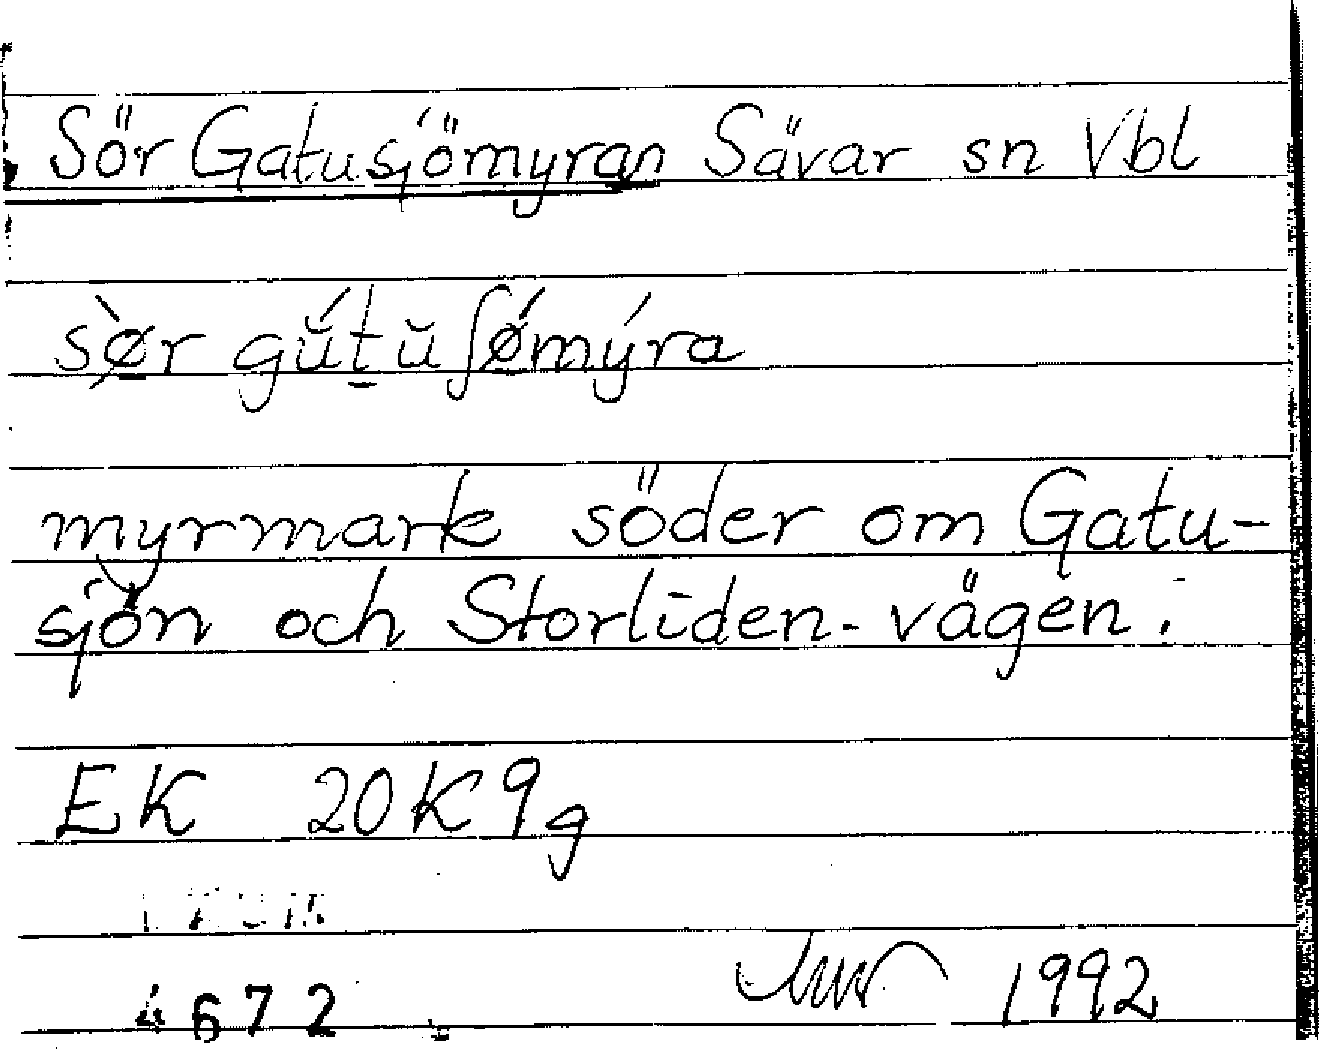 Sör Gatusjömyran Sävar sn Vbl
sø̀r gŭ́tŭʃǿmýra
myrmark söder om Gatu-
sjön och Storliden-vägen.
EK 20K 9g
4672 1992